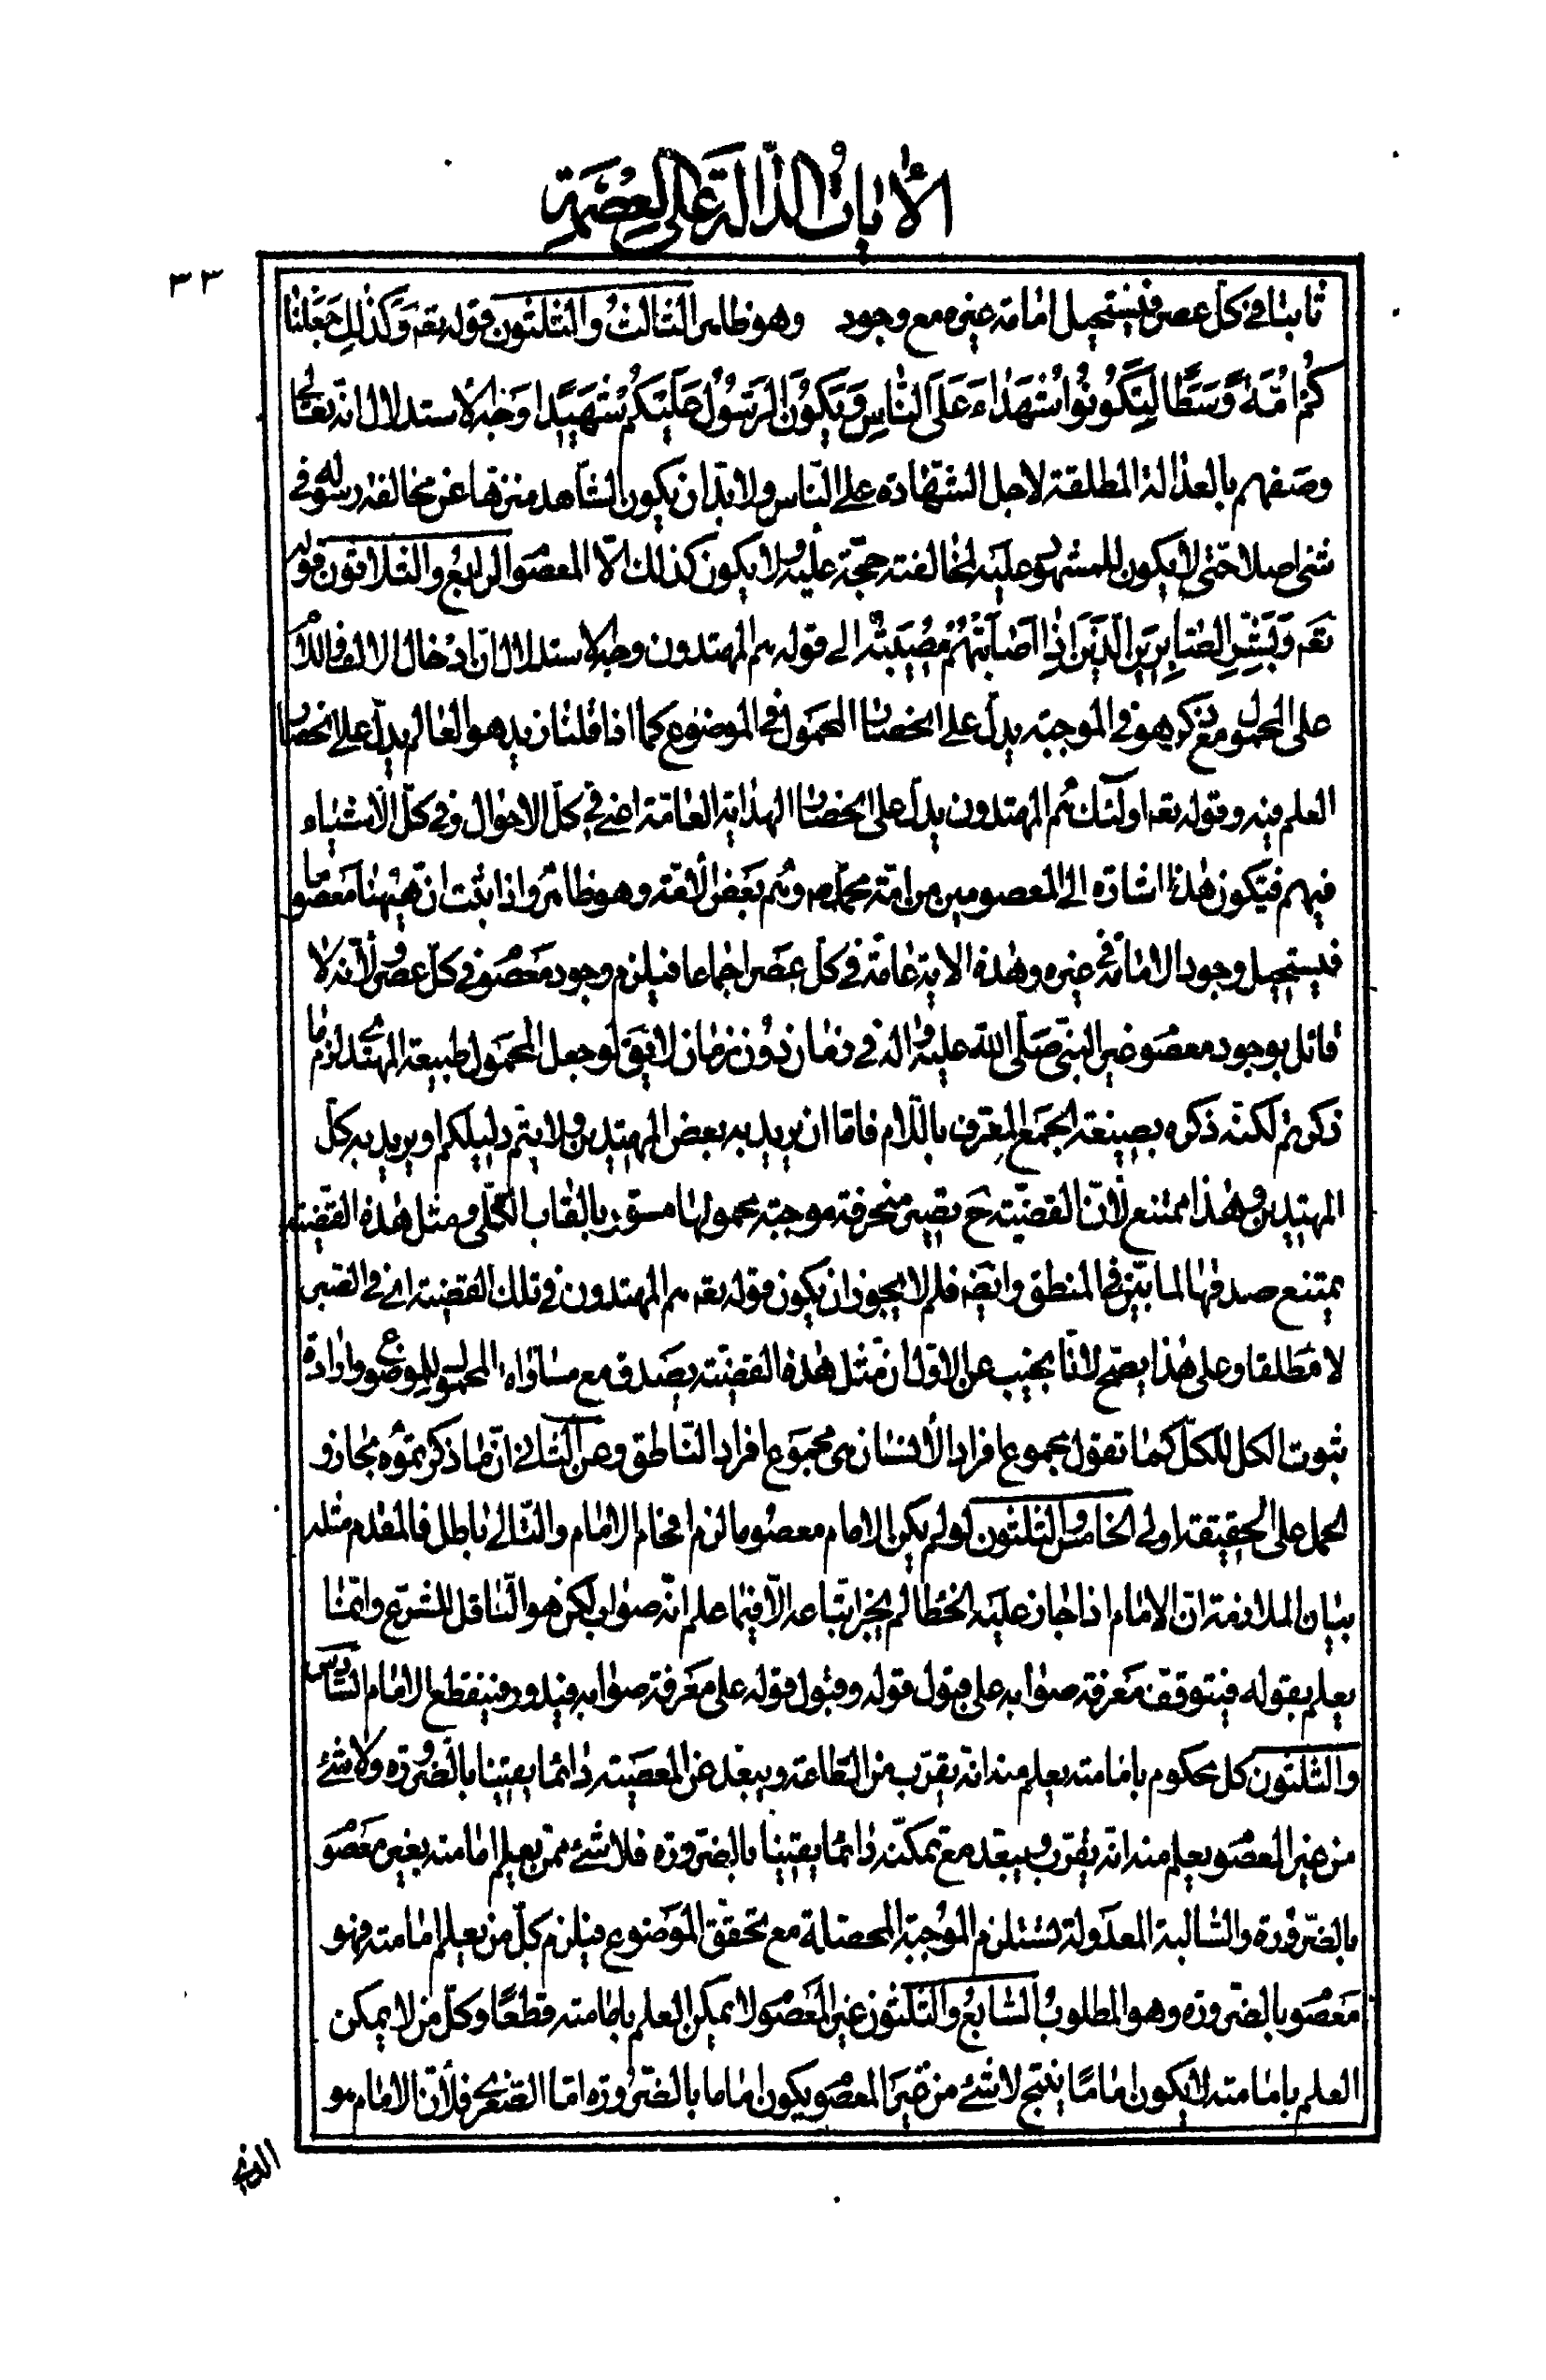 الآيات الدالة على العصمة
٣٣
ثابتا في كل عصر فيستحيل امامة غيره مع وجوده وهو ظاهر الثالث والثلثون قوله تعه وَكَذٰلِكَ جَعَلْنَا
كُمْ اُمَّةً وَسَطًا لِتَكُونُوا شُهَدَاءَ عَلَى النَّاسِ وَيَكُونَ الرَّسُولُ عَلَيْكُمْ شَهِيدًا وجه الاستدلال انه تعالى
وصفهم بالعدالة المطلقة لاجل الشهادة على الناس ولا بدّ ان يكون الشاهد منزها عن مخالفة رسوله في
شئ اصلا حتى لا يكون للمشهود عليه لمخالفته حجة عليه ولا يكون كذلك الّا المعصوم الرابع والثلاثون قوله
تعه وَبَشِّرِ الصَّابِرِينَ الَّذِينَ اِذَا اَصَابَتْهُمْ مُصِيبَةٌ الى قوله هم المهتدون وجه الاستدلال انّ ادخال الالف واللام
على المحمول مع ذكر هو في الموجبة يدل على انحصار المحمول في الموضوع كما اذا قلنا زيد هو العالم يدلّ على انحصار
العلم فيه وقوله تعه اولئك هُم المهتدون يدل على انحصار الهداية العامّة اعني في كلّ الاحوال وفي كلّ الاشياء
فيهم فيكون هذا اشارة الى المعصومين من امّة محمّد ص وهُم بعض الامّة وهو ظاهر واذا ثبت انّ ههنا معصوما
فيستحيل وجود الامامة في غيره وهذه الاية عامّة في كل عصر اجماعا فيلزم وجود معصوم في كل عصر ولانّه لا
قائل بوجود معصوم غير النبيّ صلّى الله عليه واله في زمان دون زمان لا يق لو جعل المحمول طبيعة المهتدى لزم ما
ذكرتم لكنّه ذكره بصيغة الجمع المعرف باللّام فامّا ان يريد به بعض المهتدين ولا يتم دليلكم او يريد به كل
المهتدين وهذا ممتنع لانّ القضيّة ح تصير منحرفة موجبة محمولها مسوّر بالقاب الكلّى ومثل هذه القضية
يمتنع صدقها لما بيّن في المنطق وايضه فلم لا يجوز ان يكون قوله تعه هم المهتدون في تلك القضية اى في الصبر
لا مطلقا وعلى هذا يصح لانّا نجيب عن الاوّل ان مثل هذه القضيّة يصدق مع مساواة المحمول للموضوع وارادة
ثبوت الكل للكلّ كما تقول مجموع افراد الانسان هى مجموع افراد النّاطق وعن الثاني انّ ما ذكرتموه مجاز و
الحمل على الحقيقة اولى الخامس والثلثون لو لم يكن الامام معصوما لزم افحام الامام والتّالى باطل فالمقدم مثله
بيان الملازمة انّ الامام اذا جاز عليه الخطا لم يجز اتّباعه الّا فيما علم انّه صواب لكن هو النّاقل للشرع وانّما
يعلم بقوله فيتوقف معرفة صوابه على قبول قوله وقبول قوله على معرفة صوابه فيدور فينقطع الامام السّادس
والثلثون كل محكوم بامامته يعلم منه انّه يقرّب من الطّاعة ويبعّد عن المعصية دائما يقينا بالضرورة ولا شئ
من غير المعصوم يعلم منه انّه يقرّب ويبعّد مع تمكّنه دائما يقينا بالضرورة فلا شئ ممن يعلم امامته بغير معصوم
بالضرورة والسّالبة المعدولة تستلزم الموجبة المحصّلة مع تحقق الموضوع فيلزم كلّ من يعلم امامته فهو
معصوم بالضرورة وهو المطلوب السّابع والثلثون غير المعصوم لا يمكن العلم بامامته قطعًا وكلّ من لا يمكن
العلم بامامته لا يكون امامًا ينتج لا شئ من غير المعصوم يكون اماما بالضرورة امّا الصّغرى فلانّ الامام هو
الذي